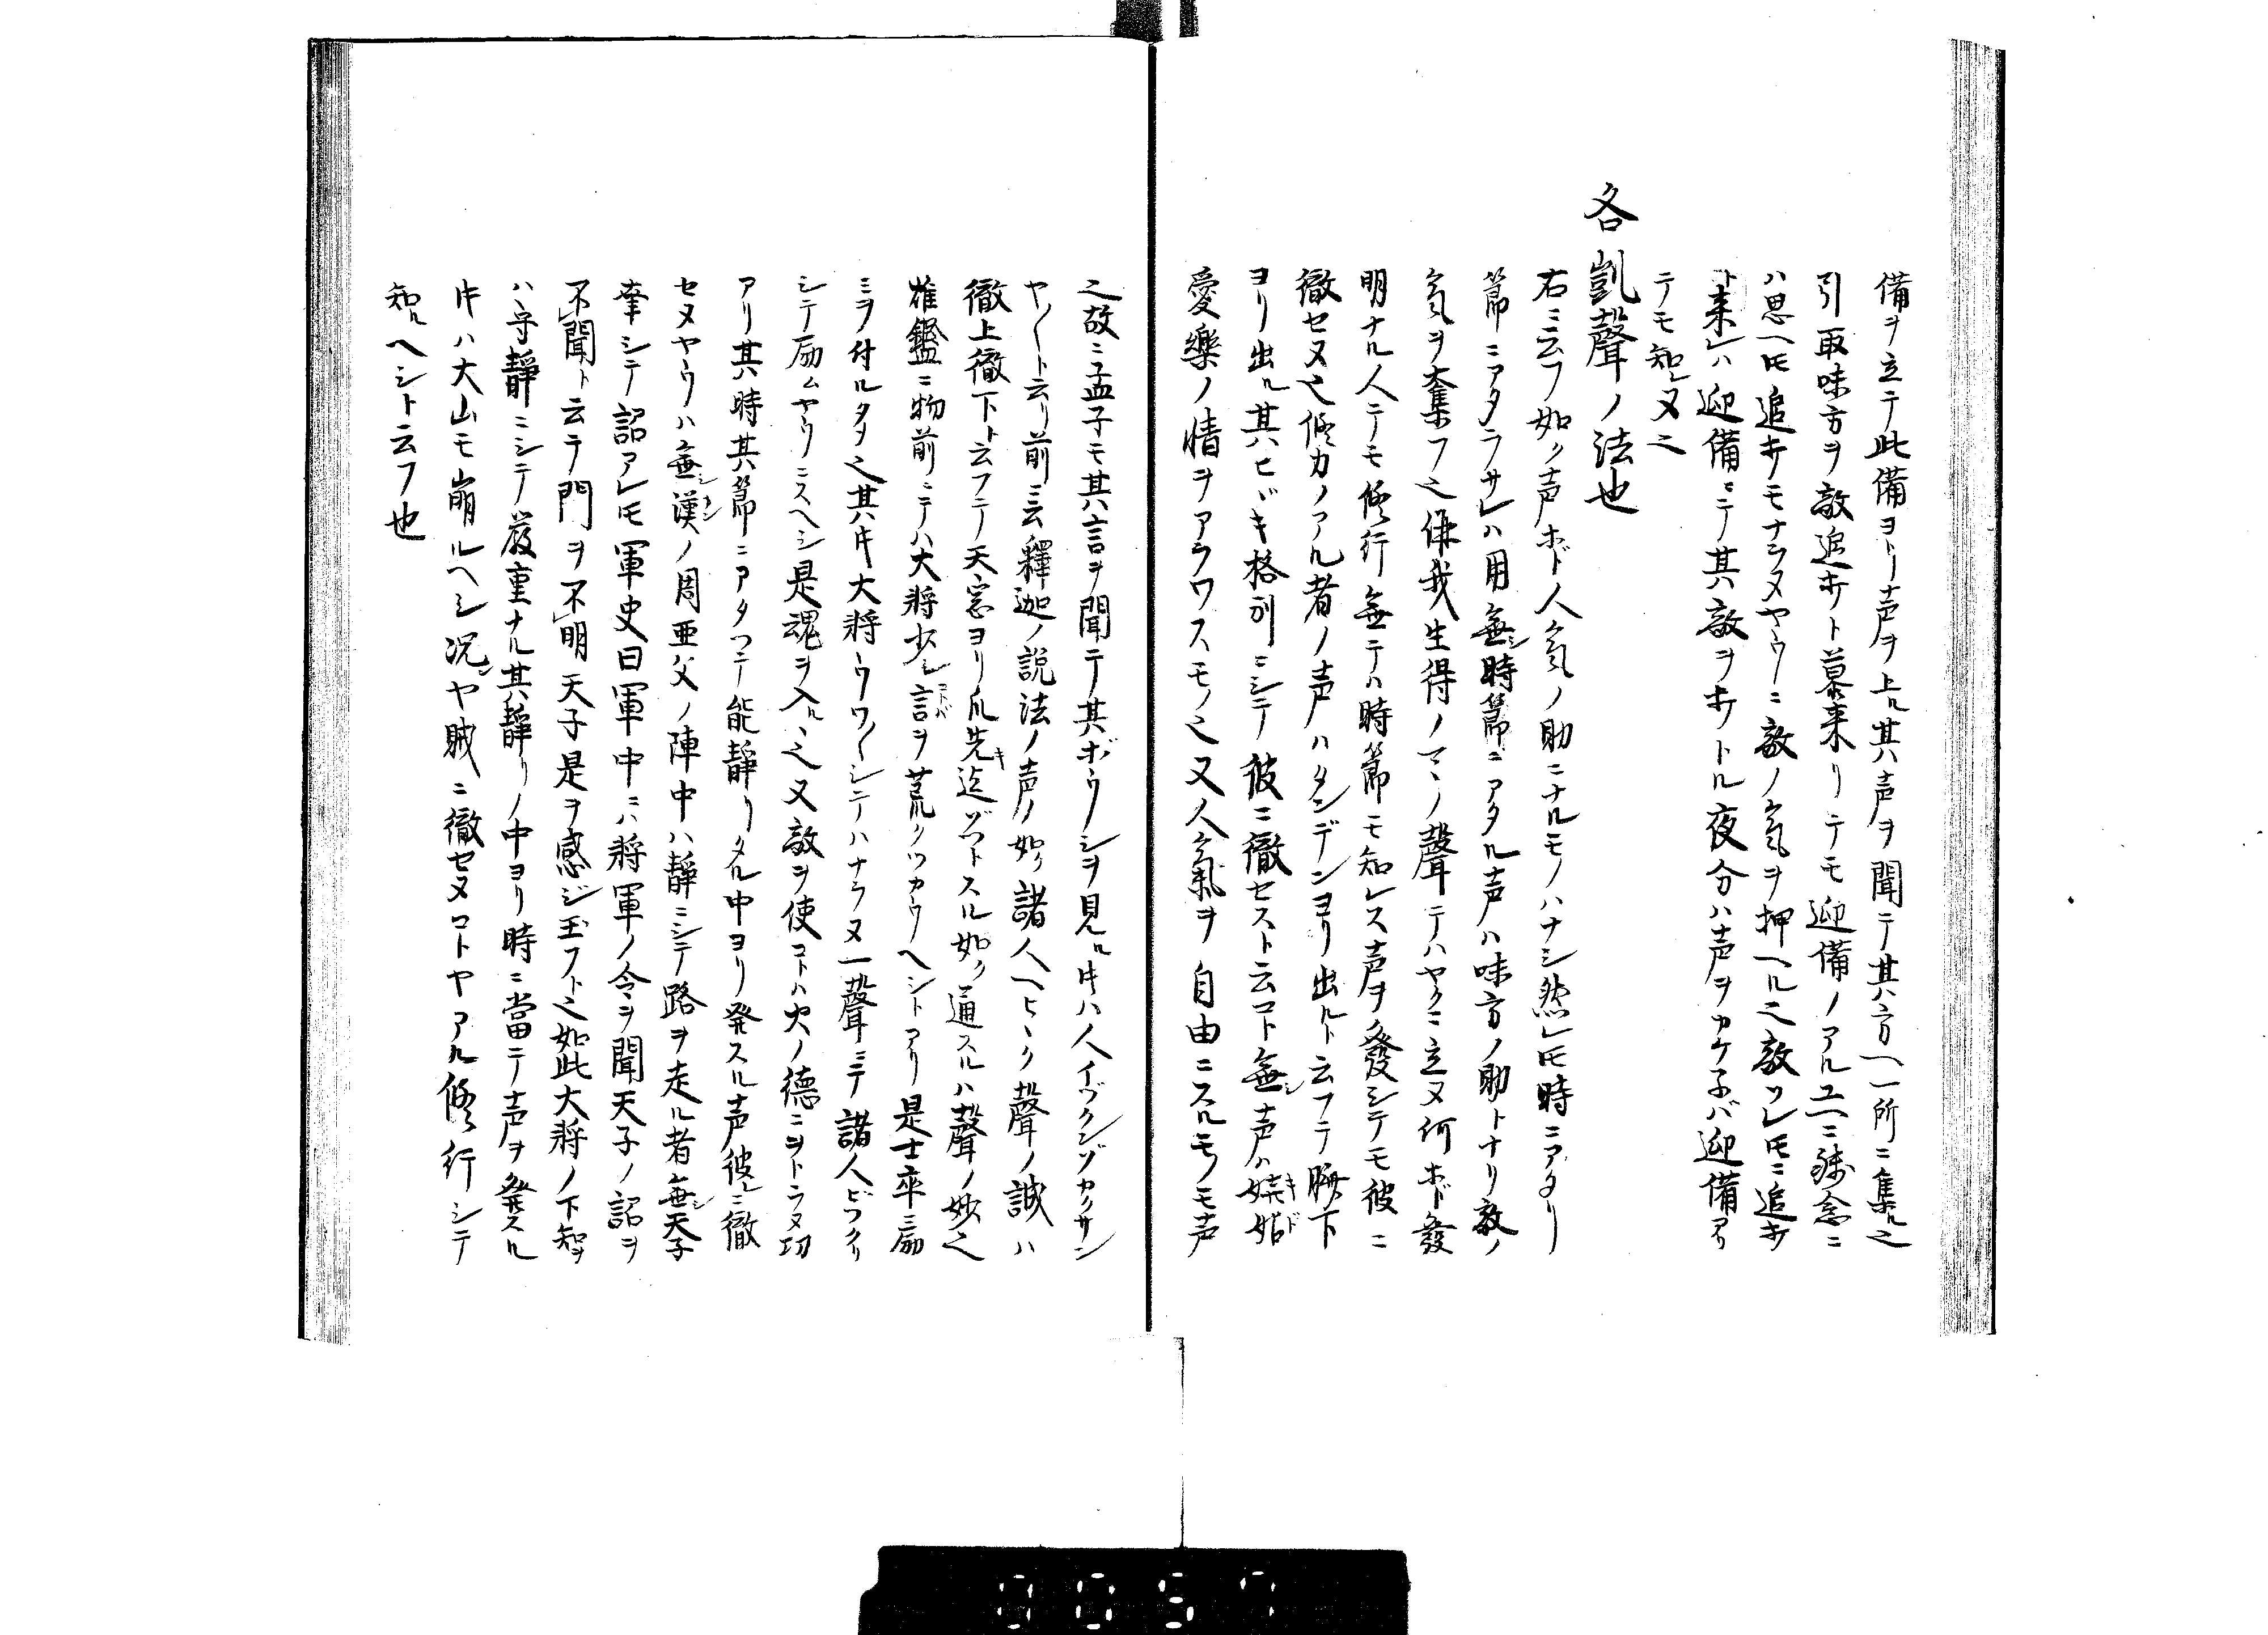 備ヲ立テ此備ヨリ声ヲ上ル其声ヲ聞テ其方ヘ一所ニ集ル也
引取味方ヲ敵追キト慕来リテモ迎備ノアルユヘニ残念ニ
ハ思ヘ𪜈追キモナラヌヤウニ敵ノ氣ヲ押ヘル也敵ソレ𪜈ニ追キ
ト来レハ迎備ニテ其敵ヲキトル夜分ハ声ヲカケ子バ迎備アリ
テモ知レヌ也
各凱聲ノ法也
右ニ云フ如ク声ホド人氣ノ助ニナルモノハナシ然レ𪜈時ニアタリ
節ニアタラサレハ用無シ時節ニアタル声ハ味方ノ助トナリ敵ノ
氣ヲ奪フ也併我生得ノマヽノ聲テハヤクニ立ヌ何ホド發
明ナル人テモ修行無テハ時節モ知レス声ヲ發シテモ彼ニ
徹セヌ也修力ノアル者ノ声ハタンデンヨリ出ルト云フテ臍下
ヨリ出ル其ヒヾキ格別ニシテ彼ニ徹セスト云コト無シ声ハ
愛樂ノ情ヲアラワスモノ也又人氣ヲ自由ニスルモノモ声
也故ニ孟子モ其言ヲ聞テ其ボウシヲ見ル𪜀ハ人イヅクンゾカクサン
ヤト云リ前ニ云釋迦ノ説法ノ声ノ如ク諸人ヘヒヽク聲ノ誠ハ
徹上徹下ト云フテ天窓ヨリ爪先迄ヅットスル如ク通スルハ聲ノ妙也
雄鑑ニ物前ニテハ大將少シ言ヲ荒クツカウヘシトアリ是士卒ニ励
ミヲ付ルタメ也其𪜀大將ウワ〱シテハナラヌ一聲ニテ諸人ビックリ
シテ励ムヤウニスヘシ是魂ヲ入ルヽ也又敵ヲ使コトハ火ノ德ニヲトラヌ功
アリ其時其節ニアタッテ能靜リタル中ヨリ発スル声彼ニ徹
セヌヤウハ無シ漢ノ周亜父ノ陣中ハ靜ニシテ路ヲ走ル者無シ天子
幸シテ詔アレ𪜈軍史曰軍中ニハ將軍ノ令ヲ聞天子ノ詔ヲ
不聞ト云テ門ヲ不明天子是ヲ感ジ玉フト也如此大將ノ下知ヲ
ハ守靜ニシテ嚴重ナル其靜リノ中ヨリ時ニ當テ声ヲ発スル
𪜀ハ大山モ崩ルヘシ況ンヤ賊ニ徹セヌコトヤアル修行シテ
知ルヘシト云フ也